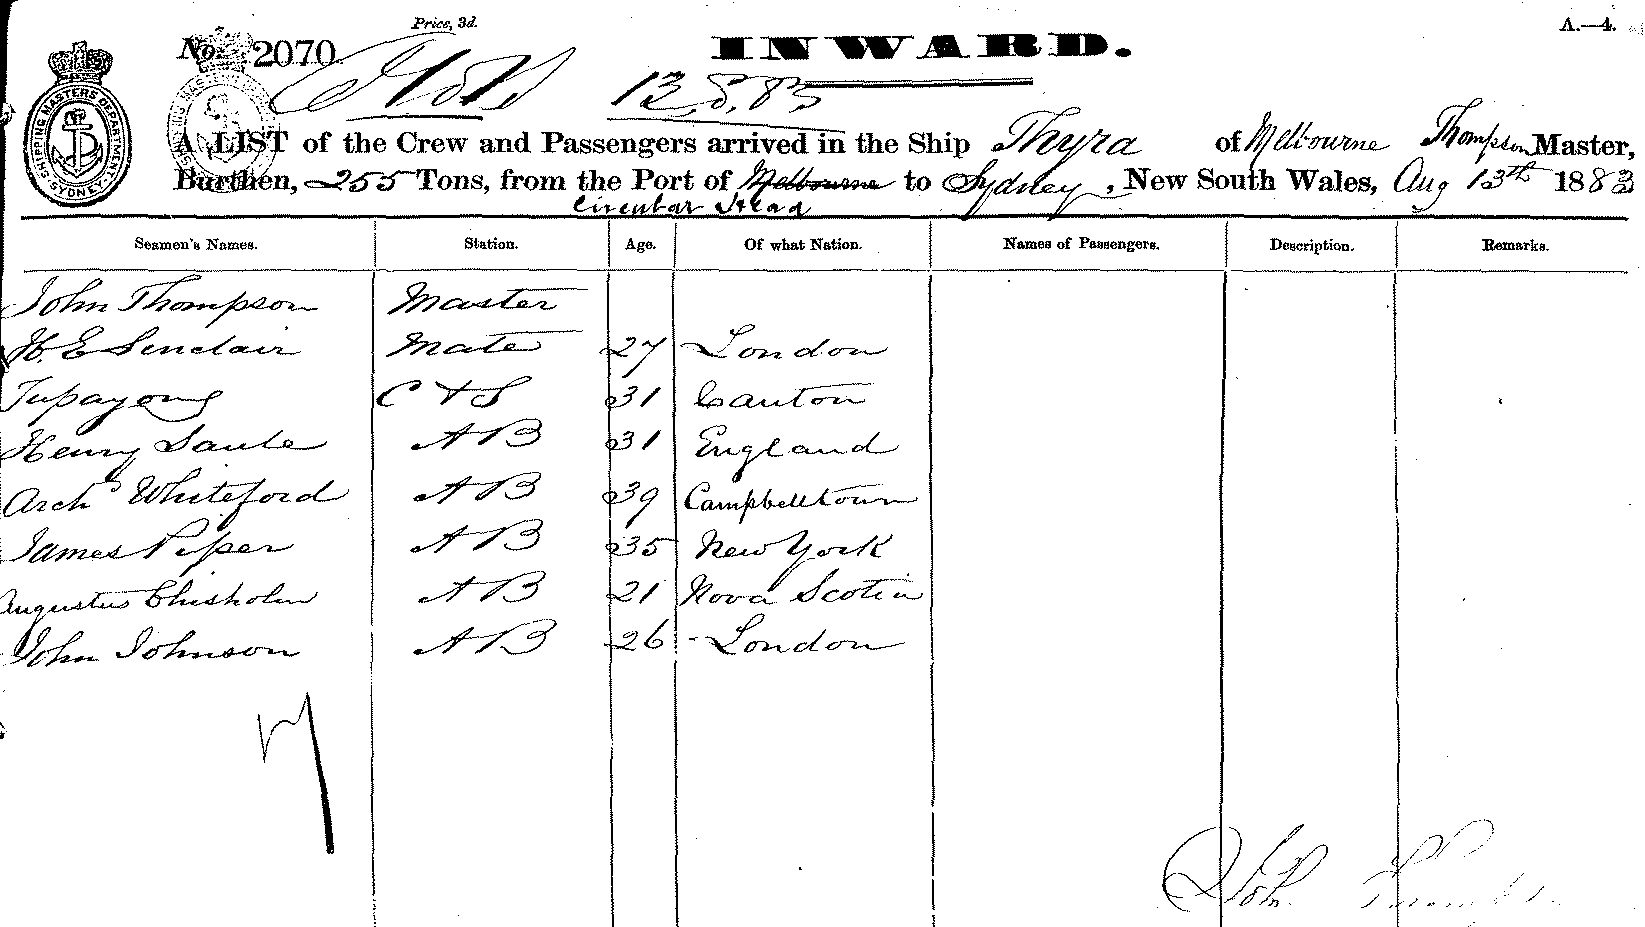 Price, 3d.
A.—4.
No. 2070.
INWARD.
13.8.83
SHIPPING MASTERS DEPARTMENT SYDNEY
A LIST of the Crew and Passengers arrived in the Ship Thyra of Melbourne Thompson Master,
Burthen, 255 Tons, from the Port of Melbourne to Sydney, New South Wales, Aug 13th 1883
Circular Head
Seamen's Names. Station. Age. Of what Nation. Names of Passengers. Description. Remarks.
John Thompson Master
H. E Sinclair Mate 27 London
Tupayong C & S 31 Canton
Henry Saule A B 31 England
Archd Whiteford A B 39 Campbelltown
James Piper A B 35 New York
Augustus Chisholm A B 21 Nova Scotia
John Johnson A B 26 - London
John Thompson